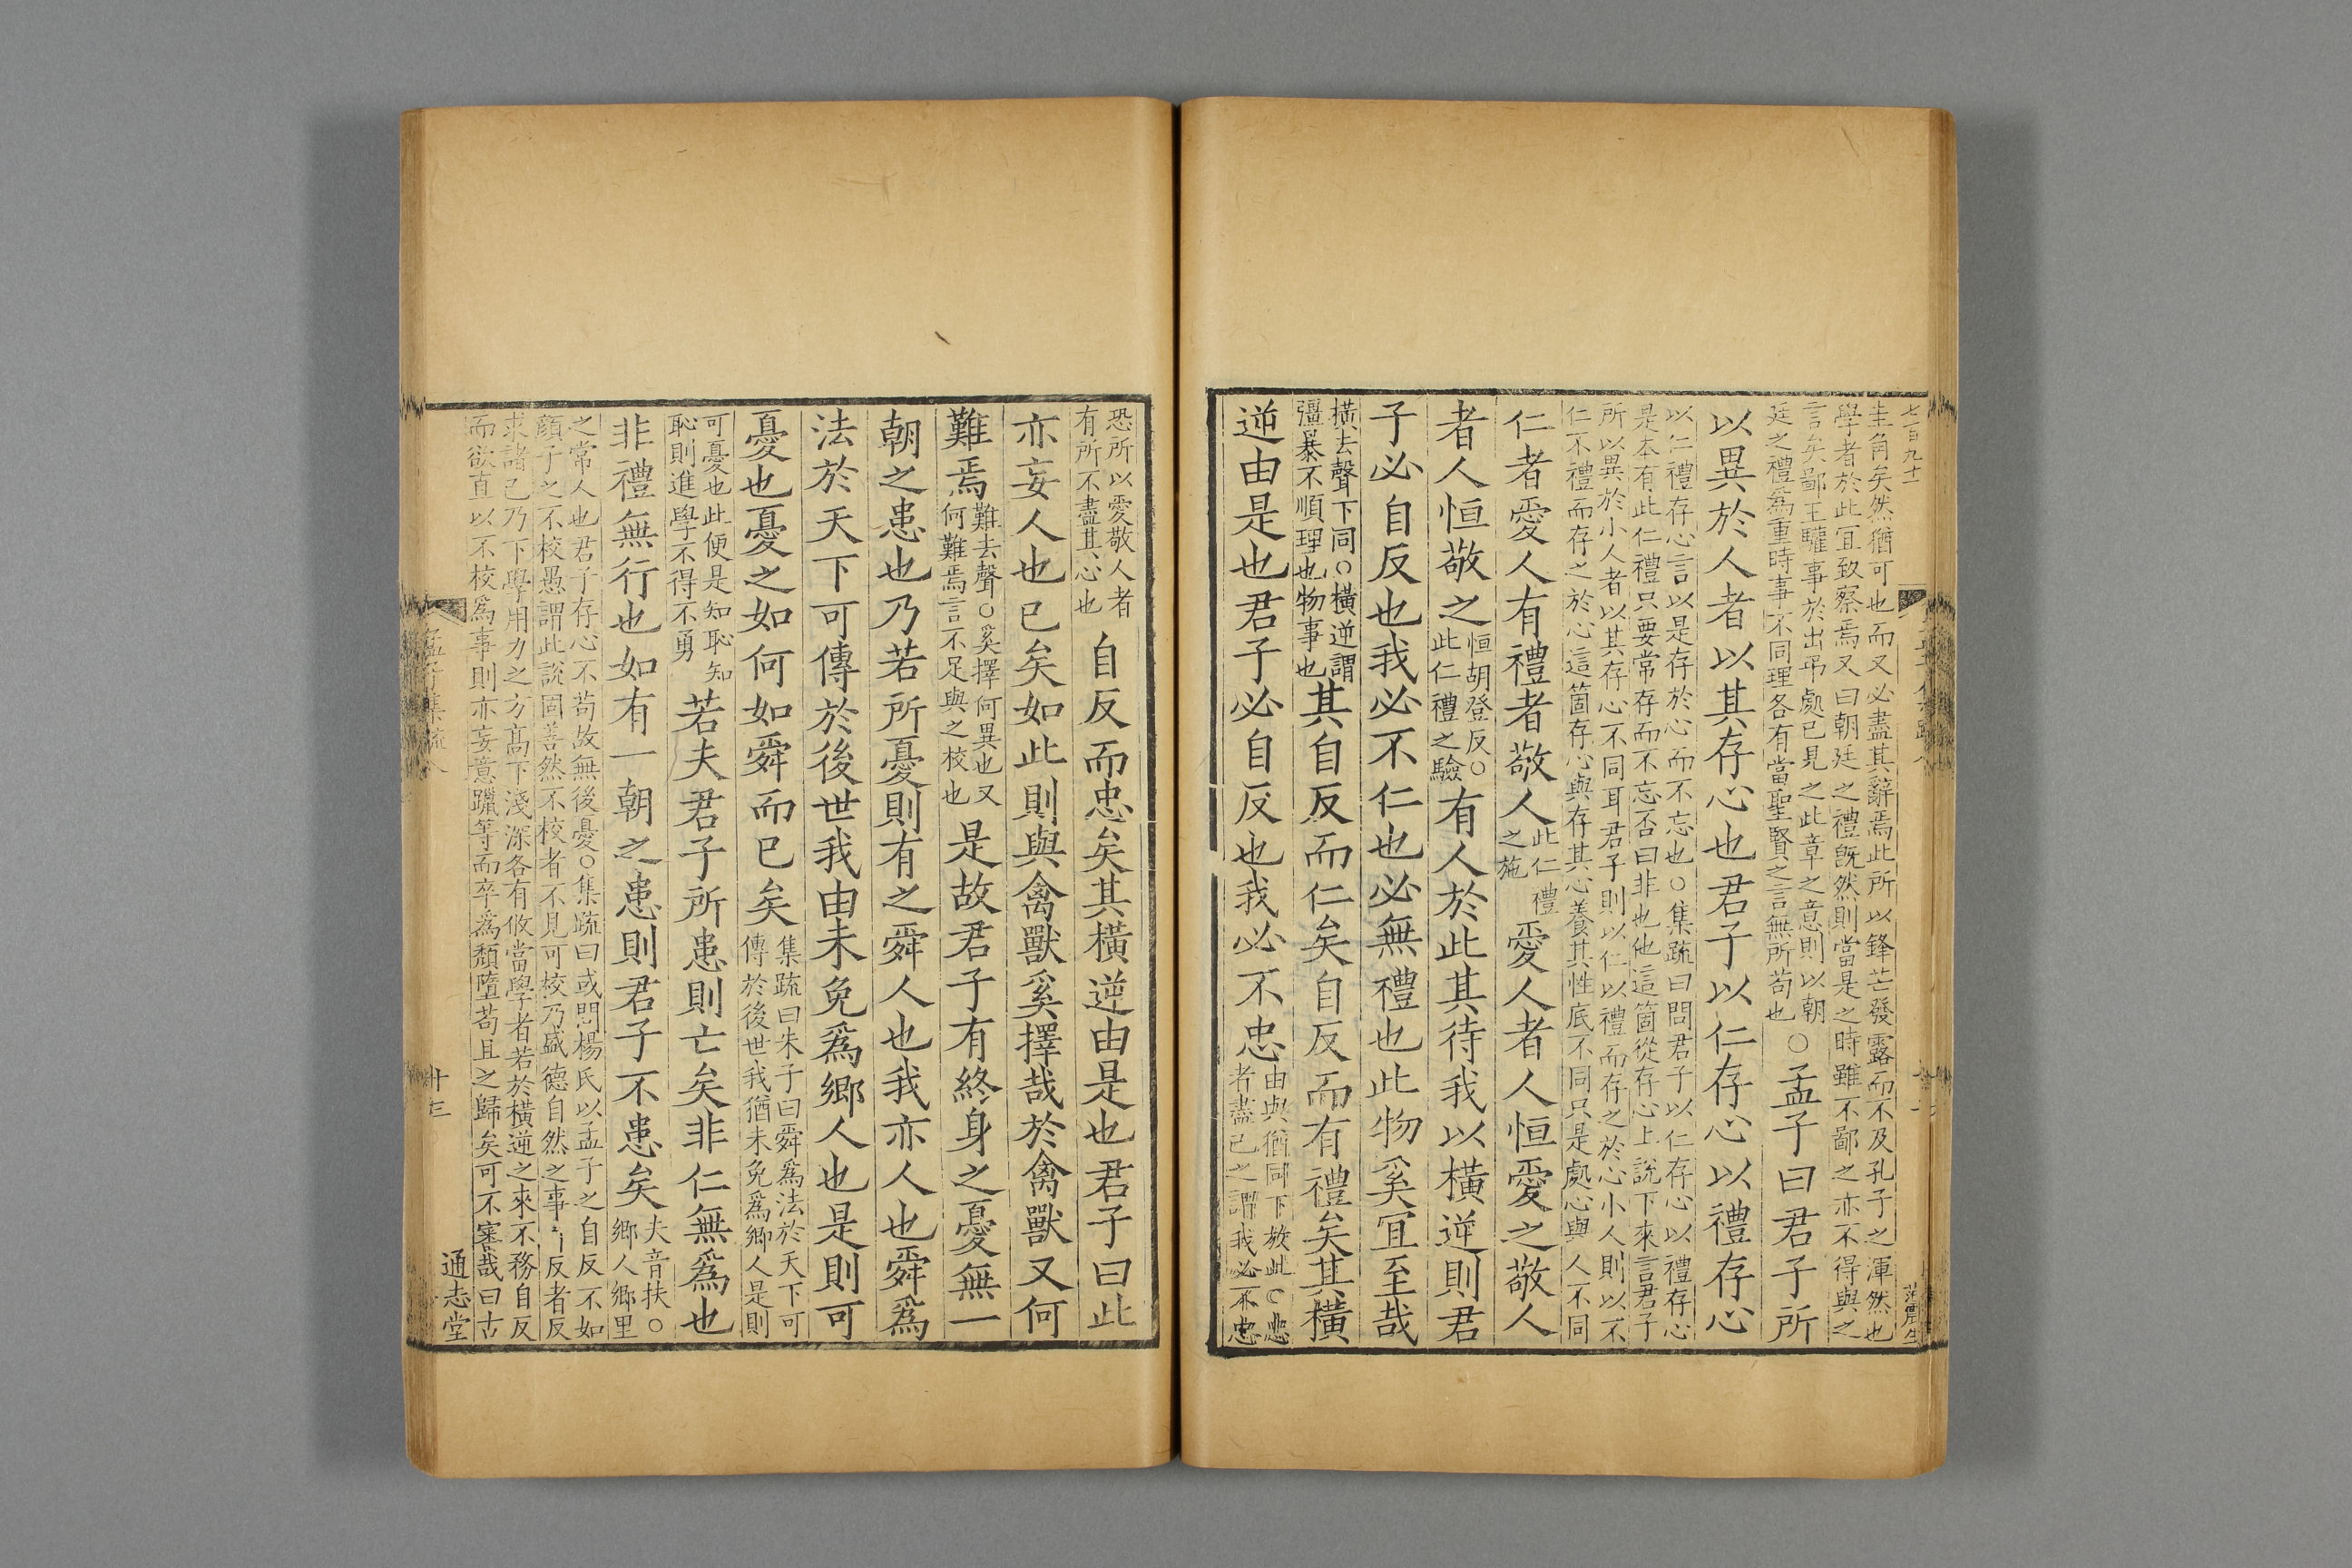 七百九十
圭角矣然猶可也而又必盡其辭焉此所以鋒芒發露而不及孔子之渾然也
學者於此宜致察焉又曰朝廷之禮旣然則當是之時雖不鄙之亦不得與之
言矣鄙王驩事於出弔處已見之此章之意則以朝
廷之禮爲重時事不同理各有當聖賢之言無所苟也
○孟子曰君子所
以異於人者以其存心也君子以仁存心以禮存心
以仁禮存心言以是存於心而不忘也○集疏曰問君子以仁存心以禮存心
是本有此仁禮只要常存而不忘否曰非也他這箇從存心上說下來言君子
所以異於小人者以其存心不同耳君子則以仁以禮而存之於心小人則以不
仁不禮而存之於心這箇存心與存其心養其性底不同只是處心與人不同
仁者愛人有禮者敬人
此仁禮
之施
愛人者人恒愛之敬人
者人恒敬之
恒胡登反○
此仁禮之驗
有人於此其待我以橫逆則君
子必自反也我必不仁也必無禮也此物奚宜至哉
橫去聲下同○橫逆謂
彊暴不順理也物事也
其自反而仁矣自反而有禮矣其橫
逆由是也君子必自反也我必不忠
由與猶同下放此○忠
者盡己之謂我必不忠
恐所以愛敬人者
有所不盡其心也
自反而忠矣其橫逆由是也君子曰此
亦妄人也已矣如此則與禽獸奚擇哉於禽獸又何
難焉
難去聲○奚擇何異也又
何難焉言不足與之校也
是故君子有終身之憂無一
朝之患也乃若所憂則有之舜人也我亦人也舜爲
法於天下可傳於後世我由未免爲鄉人也是則可
憂也憂之如何如舜而已矣
集疏曰朱子曰舜爲法於天下可
傳於後世我猶未免爲鄉人是則
可憂也此便是知恥知
恥則進學不得不勇
若夫君子所患則亡矣非仁無爲也
非禮無行也如有一朝之患則君子不患矣
夫音扶○
鄉人鄉里
之常人也君子存心不苟故無後憂○集疏曰或問楊氏以孟子之自反不如
顏子之不校愚謂此說固善然不校者不見可校乃盛德自然之事自反者反
求諸己乃下學用力之方高下淺深各有攸當學者若於橫逆之來不務自反
而欲直以不校爲事則亦妄意躐等而卒爲頹墮苟且之歸矣可不審哉曰古
孟子集疏八
十三
通志堂